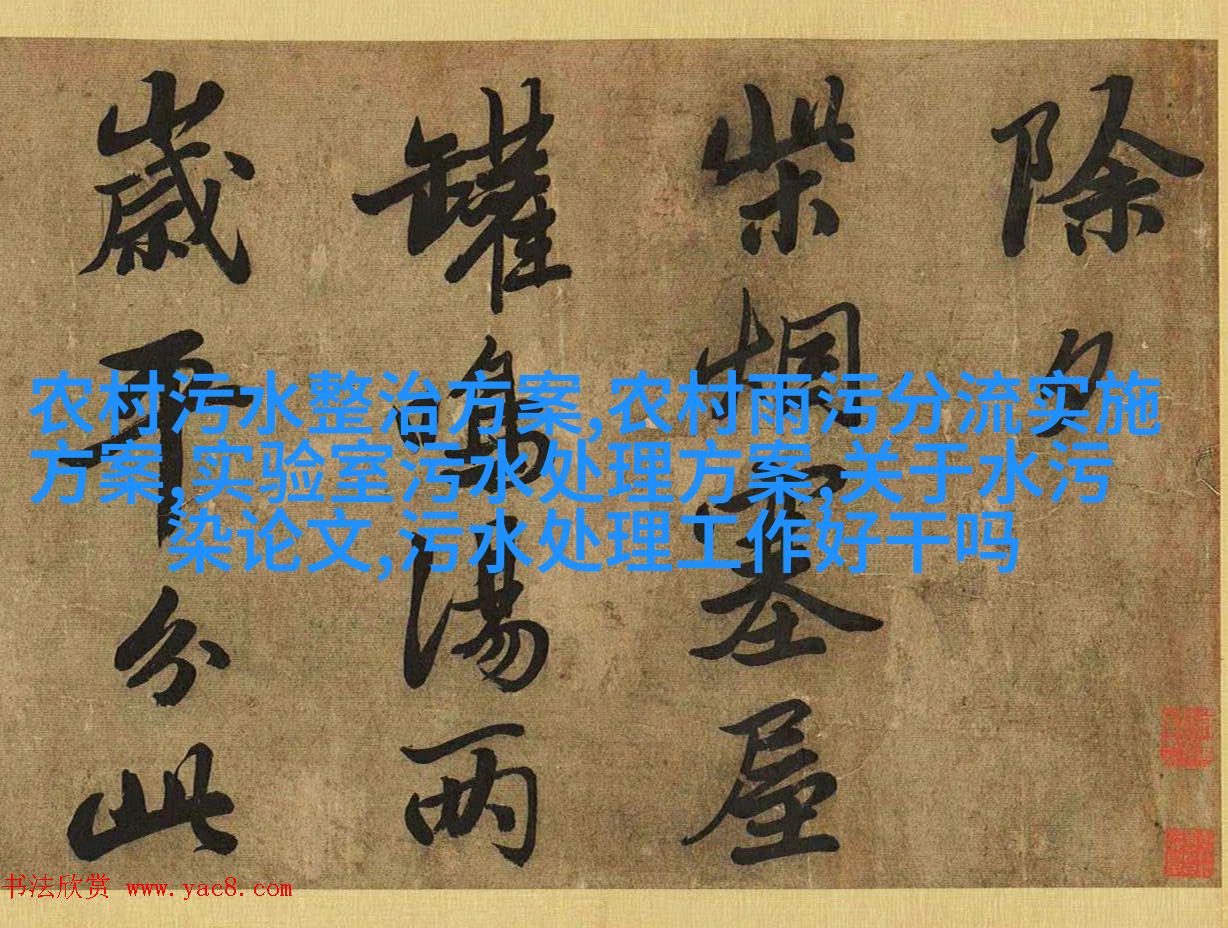 除夕
柴烟塞屋
罐鳴湯兩
歲平分此
农村污水整治方案,农村雨污分流实施
方案,实验室污水处理方案,关于水污
染论文,污水处理工作好干吗
书法欣赏 www.yac8.com